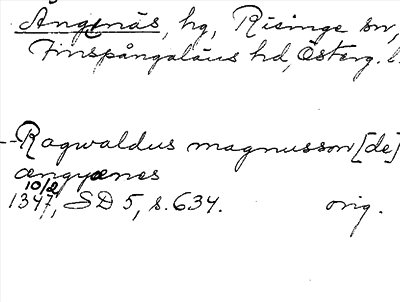 Ängenäs, hg, Risinge sn,
Finspångaläns hd, Österg. l.
-- Ragwaldus magnusson [de]
ængyænes
10/2
1347, SD 5, s. 634. orig.